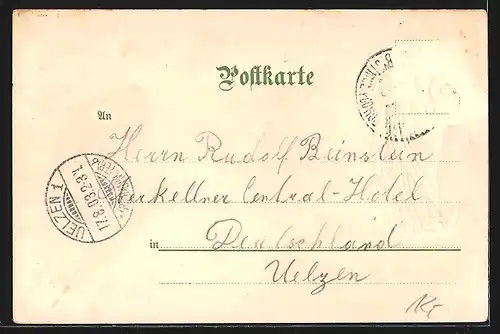 Postkarte
An
Herrn Rudolf Beinstein
Oberkellner Central-Hotel
in Deutschland
Uelzen
UELZEN 1
17.8.03.2-3